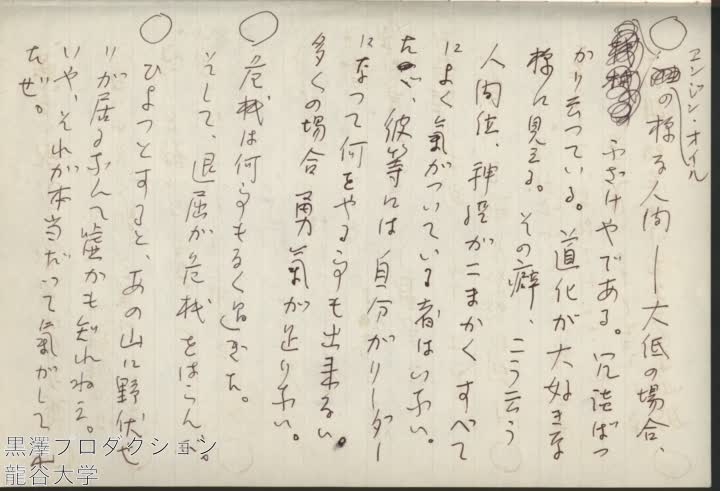 エンジン・オイル
の様な人間ー大低の場合、
ふざけやである。冗談ばつ
かり云つている。道化が大好きな
様に見える。その癖、こう云う
人間位、神経がこまかくすべて
によく氣がついている者はいない。
たゞ、彼等には自分がリーダー
になつて何をやる事も出来ない。
多くの場合 勇氣が足りない。
危機は何事もなく過ぎた。
そして、退屈が危機をはらんだ。
ひよつとすると、あの山に野伏せ
りが居るなんて嘘かも知れねえ。
いや、それが本当だつて氣がして来
たぜ。
黒澤プロダクション
龍谷大学